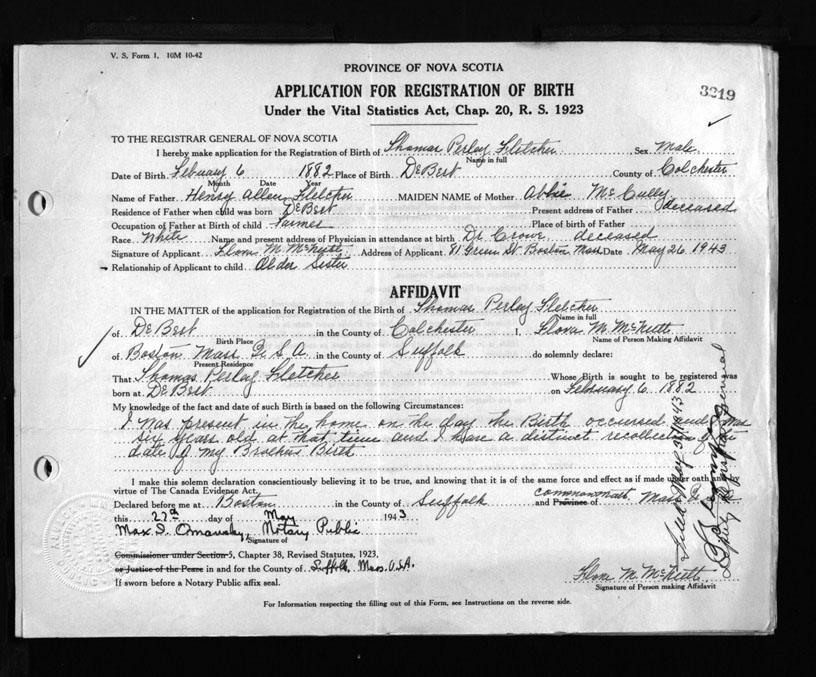 V. S. Form 1. 10M 10-42
PROVINCE OF NOVA SCOTIA
3219
APPLICATION FOR REGISTRATION OF BIRTH
Under the Vital Statistics Act, Chap. 20, R. S. 1923
TO THE REGISTRAR GENERAL OF NOVA SCOTIA
I hereby make application for the Registration of Birth of Thomas Perley Fletcher Sex Male
Name in full
Date of Birth Febuary 6 1882 Place of Birth DeBert County of Colchester
Month Date Year
Name of Father Henry Allen Fletcher MAIDEN NAME of Mother Abbie McCully
Residence of Father when child was born DeBert Present address of Father deceased
Occupation of Father at Birth of child Farmer Place of birth of Father
Race White Name and present address of Physician in attendance at birth Dr Crowe deceased
Signature of Applicant Flora M. McNutt Address of Applicant 81 Green St. Boston Mass Date May 26 1943
Relationship of Applicant to child Older Sister
AFFIDAVIT
IN THE MATTER of the application for Registration of the Birth of Thomas Perley Fletcher
Name in full
of DeBert in the County of Colchester I, Flora M. McNutt
Birth Place Name of Person Making Affidavit
of Boston Mass U.S.A. in the County of Suffolk do solemnly declare:
Present Residence
That Thomas Perley Fletcher Whose Birth is sought to be registered was
born at DeBert on February 6 1882
My knowledge of the fact and date of such Birth is based on the following Circumstances:
I was present in the home on the day the Birth occurred and was
six years old at that time and I have a distinct recollection of the
date of my Brothers Birth
I make this solemn declaration conscientiously believing it to be true, and knowing that it is of the same force and effect as if made under oath and
virtue of The Canada Evidence Act.
Declared before me at Boston in the County of Suffolk and Province of Commonwealth Mass.
this 27th day of May 1943
Max I. Omansky, Notary Public
Signature of
Commissioner under Section 5, Chapter 38, Revised Statutes, 1923,
or Justice of the Peace in and for the County of Suffolk, Mass. U.S.A.
If sworn before a Notary Public affix seal.
Flora M. McNutt
Signature of Person making Affidavit
For Information respecting the filling out of this Form, see Instructions on the reverse side.
Deputy Registrar General